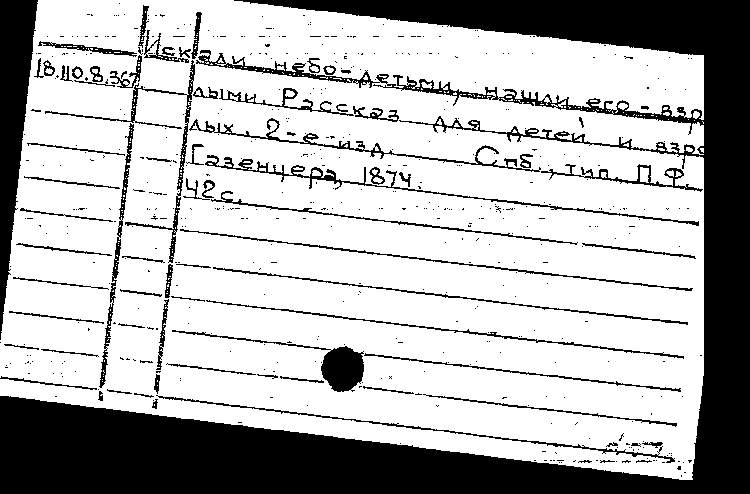 Искали небо-детьми, нашли его - взр
18.110.8.367
лыми. Рассказ для детей и взро
лых. 2-е изд. Спб., тип. П.Ф.
Газенцера, 1874.
42 с.